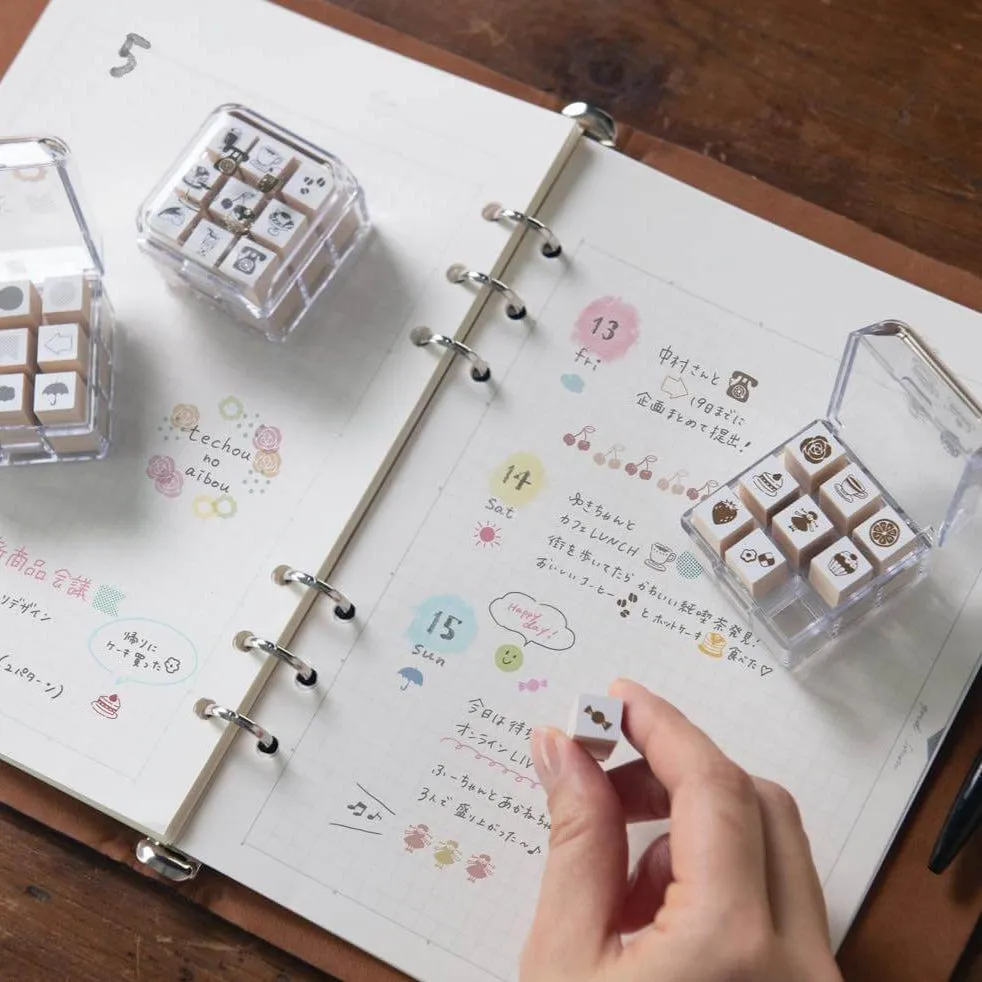 5
techou
no
aibou
新商品会議
リデザイン
(2パターン)
帰りに
ケーキ買った
13
fri
中村さんと
19日までに
企画まとめて提出!
14
Sat
ゆきちゃんと
カフェLUNCH
街を歩いてたらかわいい純喫茶発見!
おいしいコーヒーとホットケーキ食べた♡
15
Sun
Happy
day!
今日は待ち
オンラインLIV
ふーちゃんとあかねちゃ
3人で盛り上がった〜♪